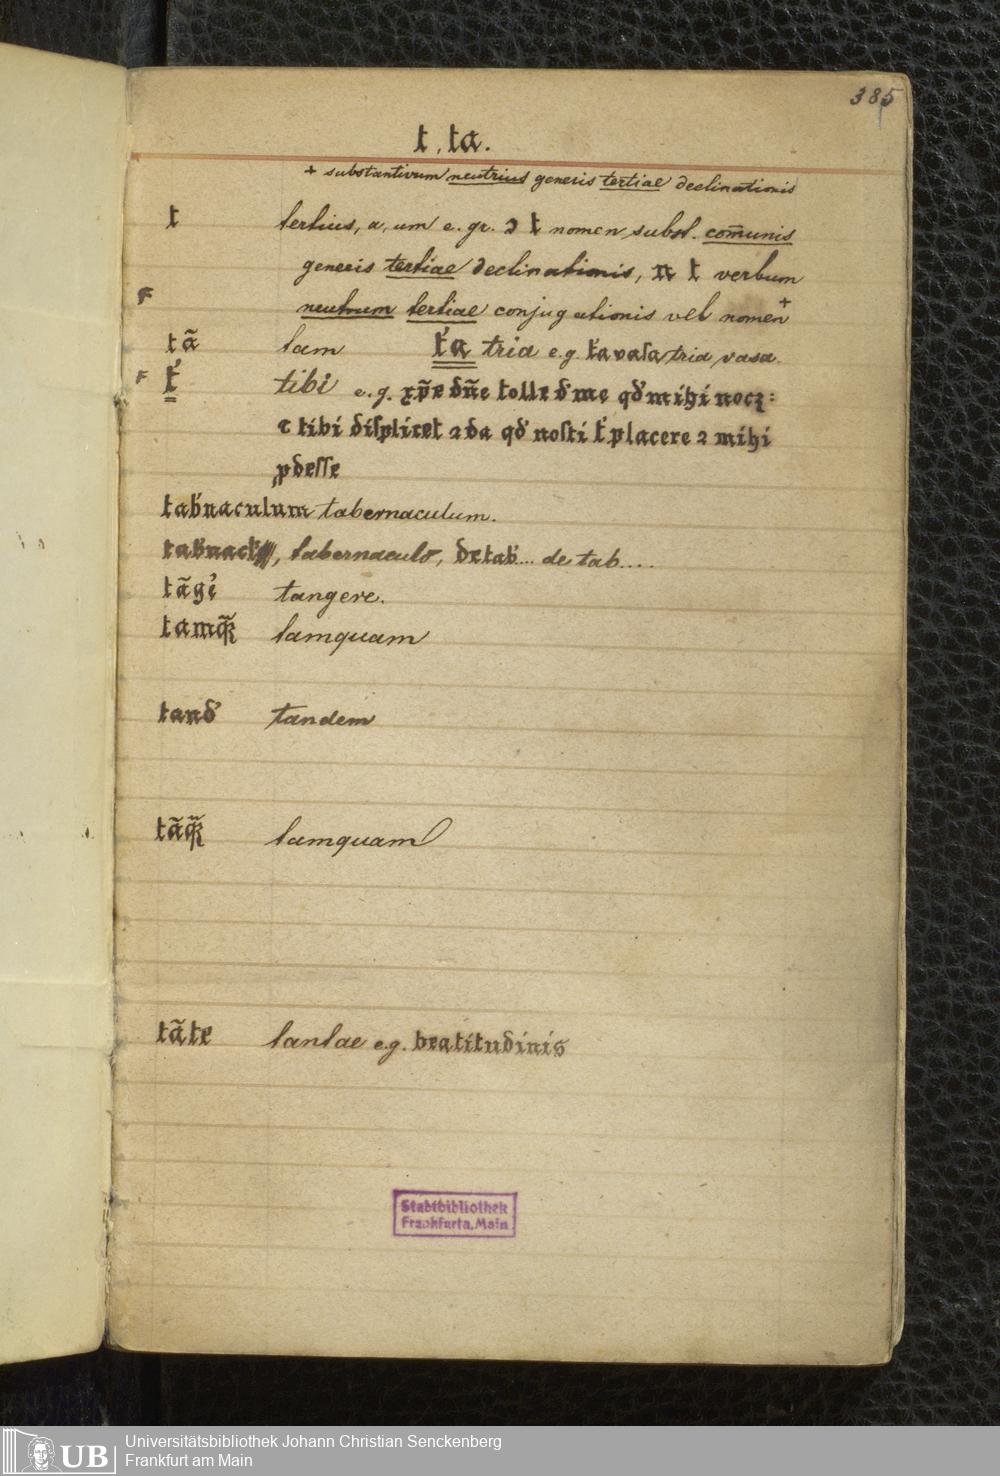 385
t, ta.
+ substantivum neutrius generis tertiae declinationis
t tertius, a, um e. gr. ꝯ t nomen subst. com̄unis
generis tertiae declinationis, n t verbum
F neutrum tertiae conjugationis vel nomen +
tã tam t̓a tria e.g. t̓a vasa tria vasa.
F t̓ tibi e.g. xp̃e dñe tolle d̓ me qd̓ mihi nocꝫ :
⁊ tibi displicet ⁊ da qd̓ nosti t̓ placere ⁊ mihi
ꝓdesse
tab̓naculum tabernaculum.
tab̓nacl̓, tabernaculo, de tab̓... de tab....
tãgẻ tangere.
tamq̃ꝫ tamquam
tand̓ tandem
tãq̃ꝫ tamquam
tãte tantae e.g. beatitudinis
Stadtbibliothek
Frankfurt a. Main
UB
Universitätsbibliothek Johann Christian Senckenberg
Frankfurt am Main